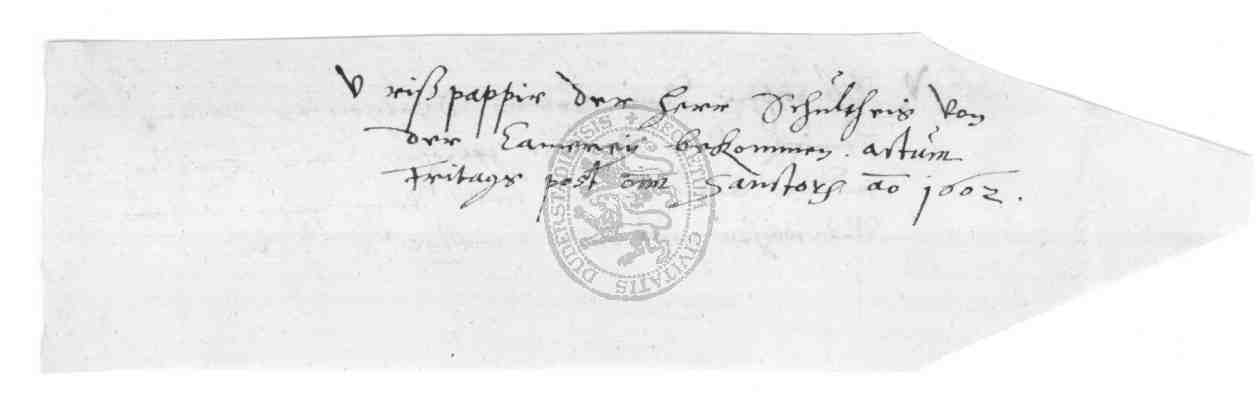 V rißpappir der Herr Schultheis von
der Camerey bekommen. actum
Fritags post om̄ Sanctorū ao 1602.
SECRETUM CIVITATIS DUDERSTADENSIS